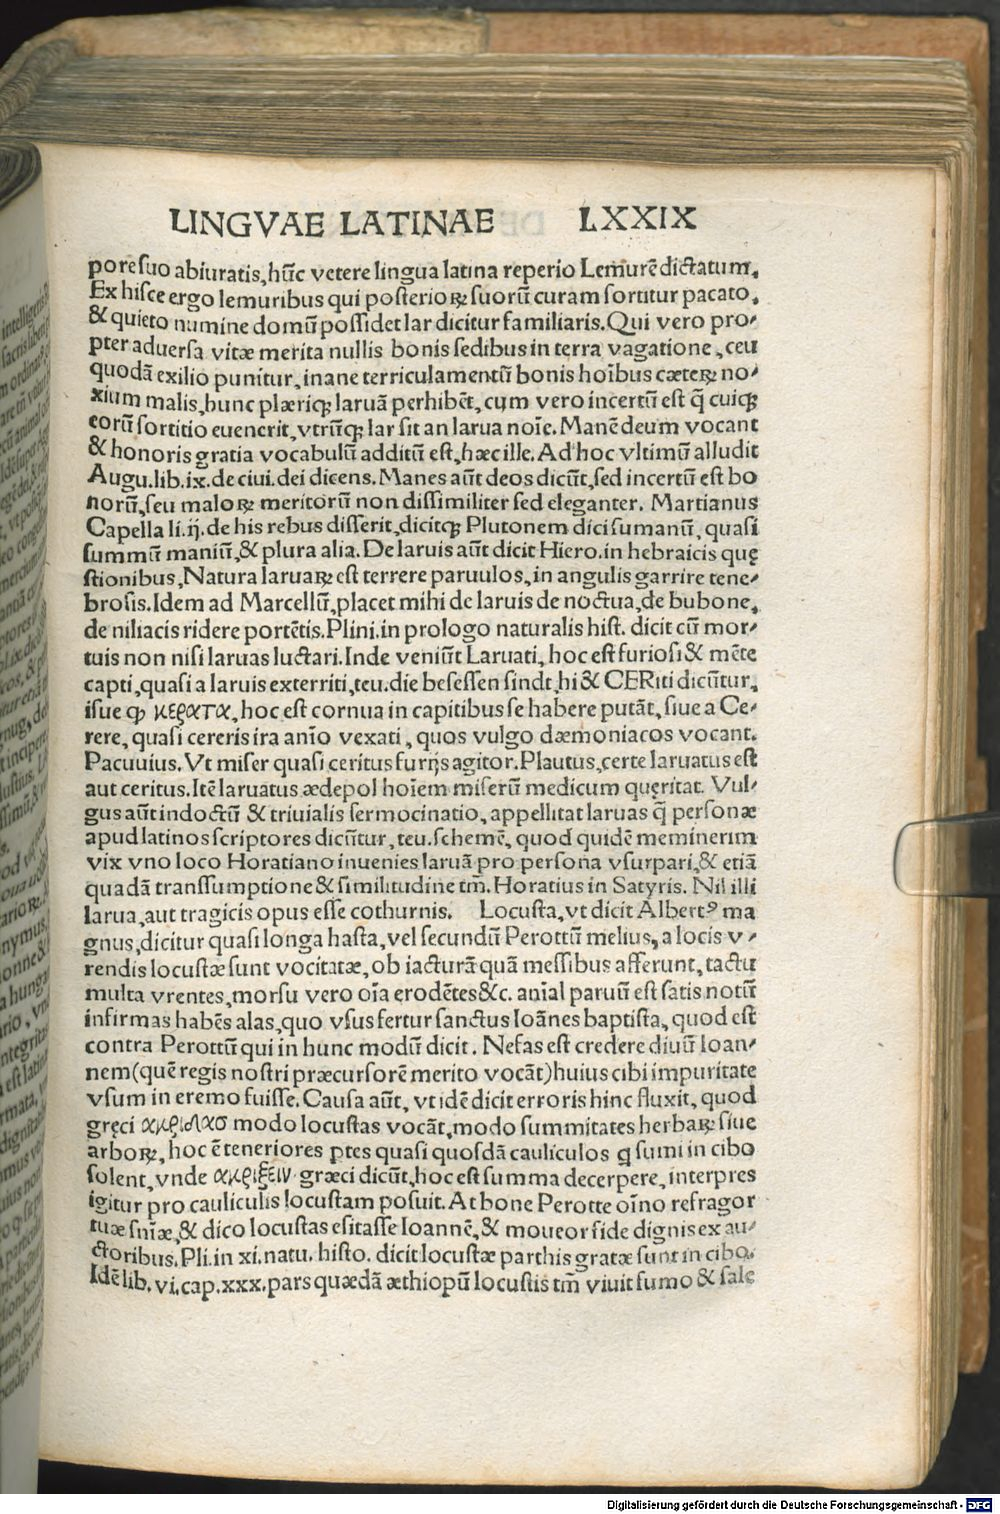 LINGVAE LATINAE LXXIX
pore suo abiuratis, hūc vetere lingua latina reperio Lemurē dictatum.
Ex hisce ergo lemuribus qui posterioꝝ suorū curam sortitur pacato,
& quieto numine domū possidet lar dicitur familiaris. Qui vero pro⸗
pter aduersa vitæ merita nullis bonis sedibus in terra vagatione, ceu
quodā exilio punitur, inane terriculamentū bonis hoībus cæteꝝ no⸗
xium malis, hunc plæriqꝫ laruā perhibēt, cum vero incertū est q̄ cuiqꝫ
eorū sortitio euenerit, vtrūqꝫ lar sit an larua noīe. Manē deum vocant
& honoris gratia vocabulū additū est, hæc ille. Ad hoc vltimū alludit
Augu. lib. ix. de ciui. dei dicens. Manes aūt deos dicūt, sed incertū est bo
norū, seu maloꝝ meritorū non dissimiliter sed eleganter. Martianus
Capella li. ij. de his rebus disserit, dicitqꝫ Plutonem dici sumanū, quasi
summū maniū, & plura alia. De laruis aūt dicit Hiero. in hebraicis quę
stionibus, Natura laruaꝝ est terrere paruulos, in angulis garrire tene⸗
brosis. Idem ad Marcellū, placet mihi de laruis de noctua, de bubone,
de niliacis ridere portētis. Plini. in prologo naturalis hist. dicit cū mor⸗
tuis non nisi laruas luctari. Inde veniūt Laruati, hoc est furiosi & mēte
capti, quasi a laruis exterriti, teu. die besessen sindt, hi & CERiti dicūtur,
isue ꝙ κερατα, hoc est cornua in capitibus se habere putāt, siue a Ce⸗
rere, quasi cereris ira anīo vexati, quos vulgo dæmoniacos vocant.
Pacuuius. Vt miser quasi ceritus furijs agitor. Plautus, certe laruatus est
aut ceritus. Itē laruatus, ædepol hoīem miserū medicum quęritat. Vul⸗
gus aūt indoctū & triuialis sermocinatio, appellitat laruas q̄ personæ
apud latinos scriptores dicūtur, teu. schemē, quod quidē meminerim
vix vno loco Horatiano inuenies laruā pro persona vsurpari, & etiā
quadā transsumptione & similitudine tm̄. Horatius in Satyris. Nil illi
larua, aut tragicis opus esse cothurnis. Locusta, vt dicit Albertꝰ ma
gnus, dicitur quasi longa hasta, vel secundū Perottū melius, a locis v⸗
rendis locustæ sunt vocitatæ, ob iacturā quā messibus afferunt, tactu
multa vrentes, morsu vero oīa erodētes &c. anīal paruū est satis notū
infirmas habēs alas, quo vsus fertur sanctus Ioānes baptista, quod est
contra Perottū qui in hunc modū dicit. Nefas est credere diuū Ioan⸗
nem (quē regis nostri præcursorē merito vocāt) huius cibi impuritate
vsum in eremo fuisse. Causa aūt, vt idē dicit erroris hinc fluxit, quod
gręci ακριδασ modo locustas vocāt, modo summitates herbaꝝ siue
arboꝝ, hoc ē teneriores ptes quasi quosdā cauliculos q̄ sumi in cibo
solent, vnde ακριξειν græci dicūt, hoc est summa decerpere, interpres
igitur pro cauliculis locustam posuit. At bone Perotte oīno refragor
tuæ snīæ, & dico locustas esitasse Ioannē, & moueor fide dignis ex au⸗
ctoribus. Pli. in xi. natu. histo. dicit locustæ parthis gratæ sunt in cibo.
Idē lib. vi. cap. xxx. pars quædā æthiopū locustis tm̄ viuit fumo & sale
Digitalisierung gefördert durch die Deutsche Forschungsgemeinschaft - DFG